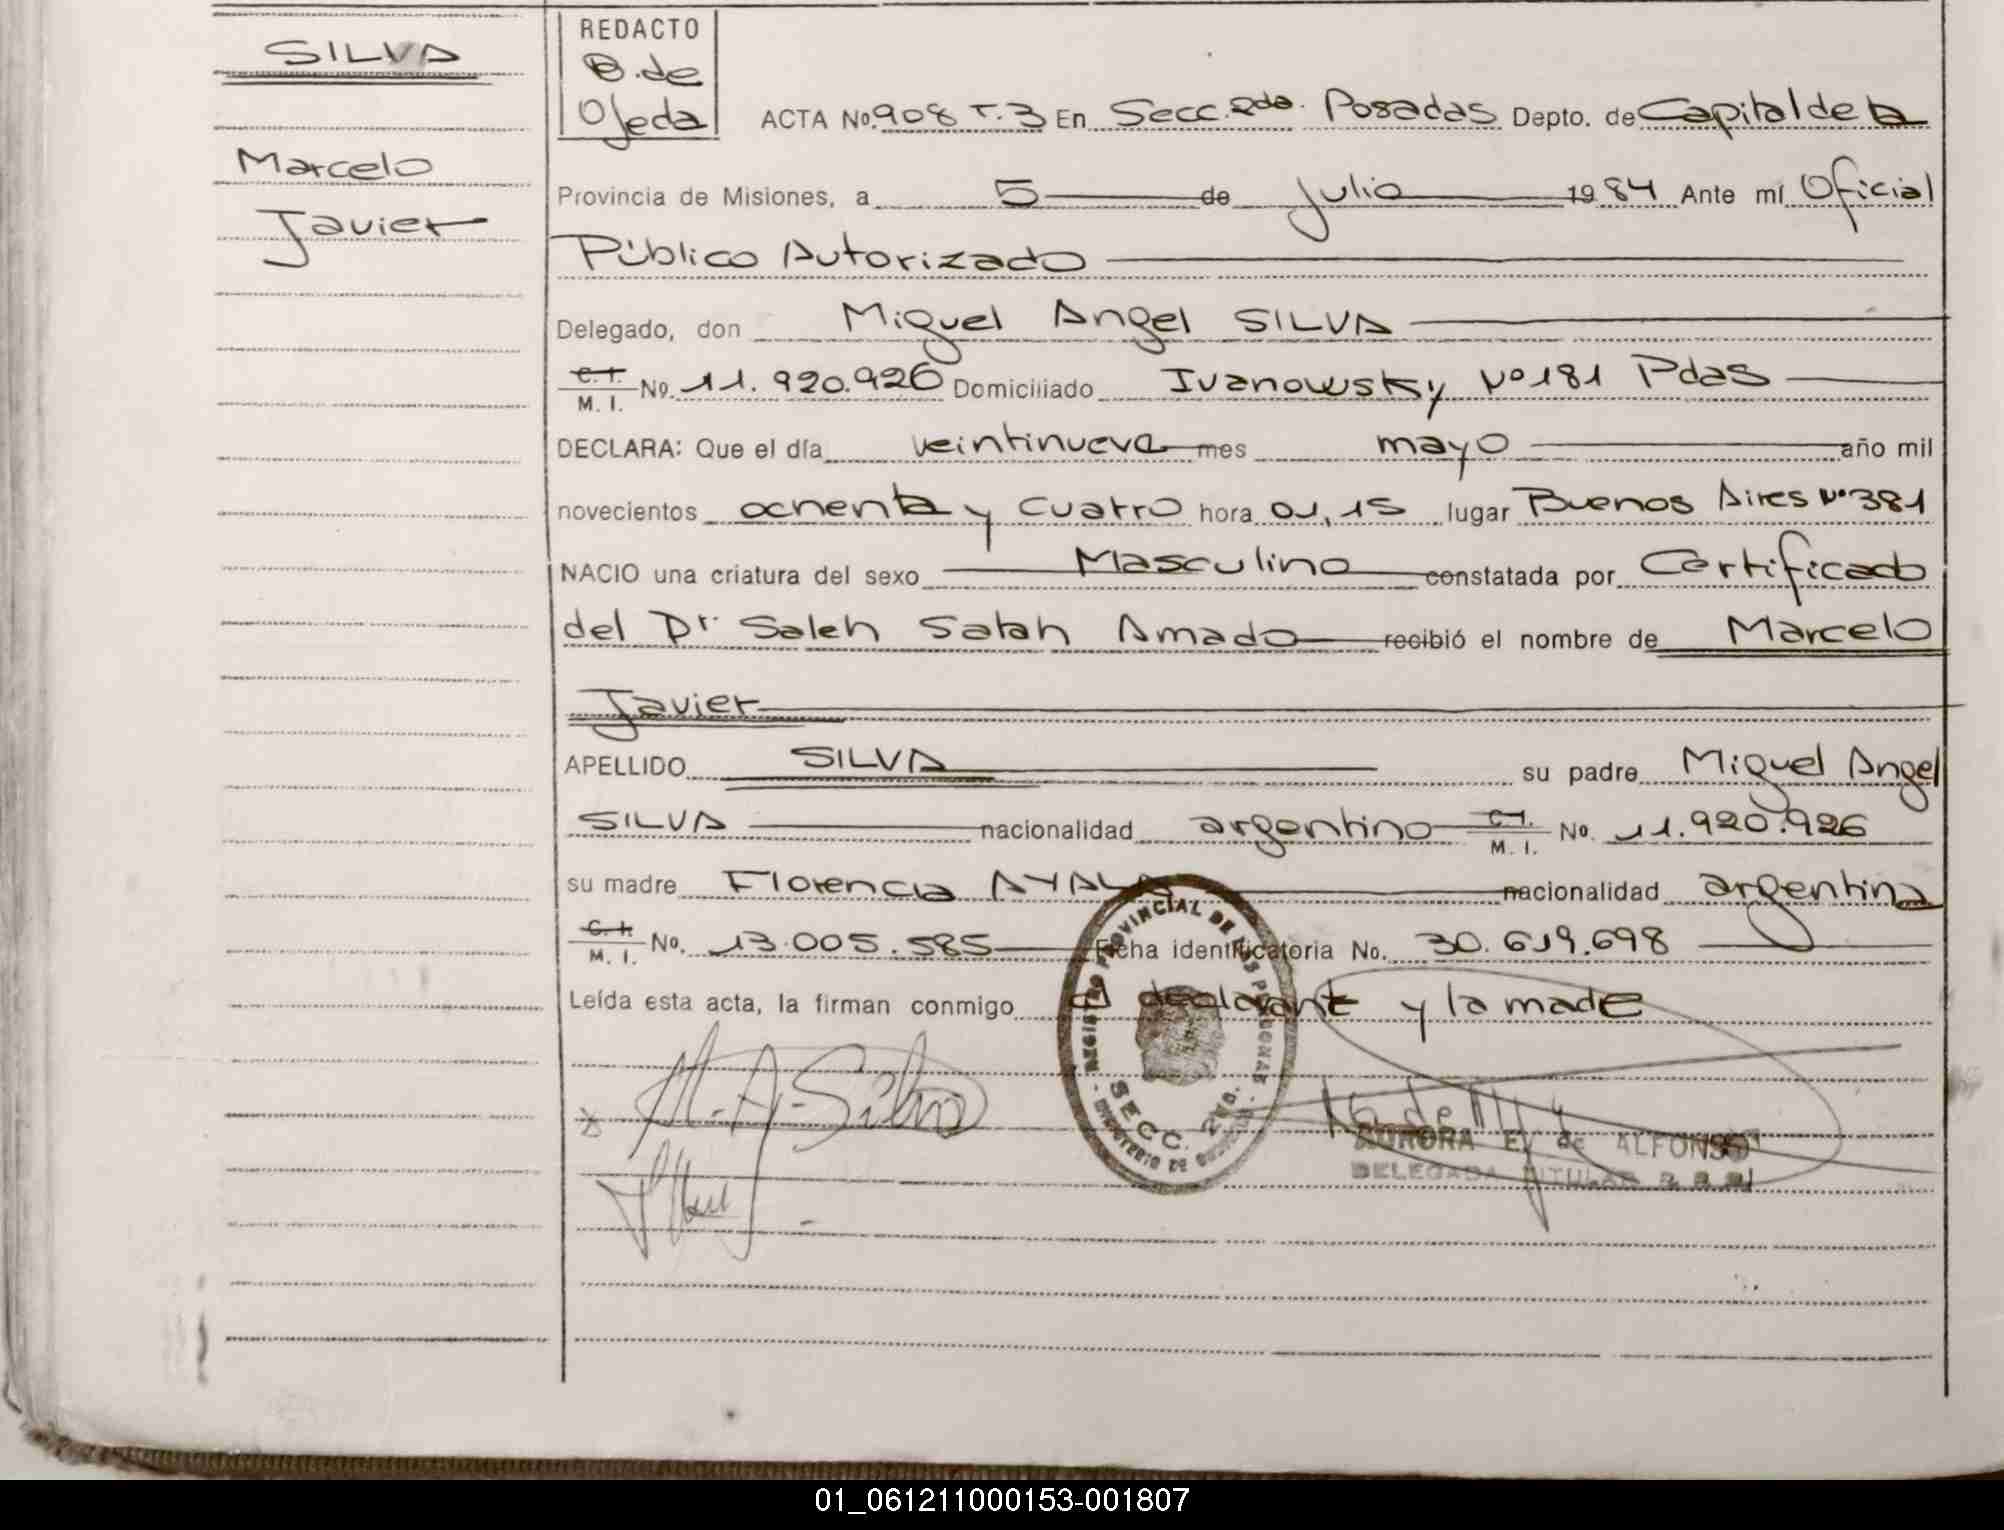 SILVA
Marcelo
Javier
REDACTO
B. de
Ojeda
ACTA No. 908 T. 3 En Secc. 2da. Posadas Depto. de Capital de la
Provincia de Misiones, a 5 de Julio 1984 Ante mí Oficial
Público Autorizado
Delegado, don Miguel Angel SILVA
C. I.
M. I. No. 11.920.926 Domiciliado Ivanowsky Nº 181 Pdas
DECLARA: Que el día veintinueve mes mayo año mil
novecientos ochenta y cuatro hora 01,15 lugar Buenos Aires Nº 381
NACIO una criatura del sexo Masculino constatada por Certificado
del Dr. Saleh Satah Amado recibió el nombre de Marcelo
Javier
APELLIDO SILVA su padre Miguel Angel
SILVA nacionalidad argentino C. I.
M. I. No. 11.920.926
su madre Florencia AYALA nacionalidad argentina
C. I.
M. I. No. 13.005.585 Ficha identificatoria No. 30.619.698
Leída esta acta, la firman conmigo el declarante y la madre
M. A. Silva
REGISTRO PROVINCIAL DE LAS PERSONAS
SECC. 2DA.
MINISTERIO DE GOBIERNO
AURORA E. de ALFONSO
DELEGADA TITULAR
01_061211000153-001807